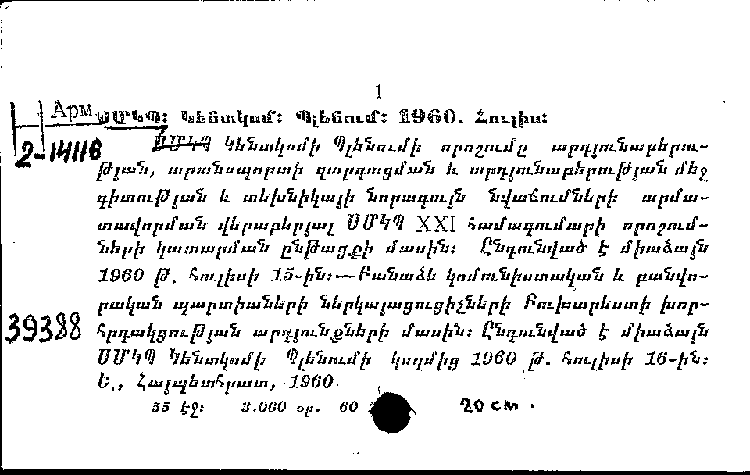 1
Арм ՍՄԿՊ: Կենտկոմ: Պլենում: 1960. Հուլիս:
2-14116 ՍՄԿՊ Կենտկոմի Պլենումի որոշումը արդյունաբերու-
թյան, տրանսպորտի զարգացման և արդյունաբերության մեջ
գիտության և տեխնիկայի նորագույն նվաճումների արմա-
տավորման վերաբերյալ ՍՄԿՊ XXI համագումարի որոշում-
ների կատարման ընթացքի մասին: Ընդունված է միաձայն
1960 թ. հուլիսի 15-ին:—Բանաձև կոմունիստական և բանվո-
րական պարտիաների ներկայացուցիչների Բուխարեստի խոր-
39388 հրդակցության արդյունքների մասին: Ընդունված է միաձայն
ՍՄԿՊ Կենտկոմի Պլենումի կողմից 1960 թ. հուլիսի 16-ին:
Ե., Հայպետհրատ, 1960.
55 էջ: 3.060 օր. 60 20 см.